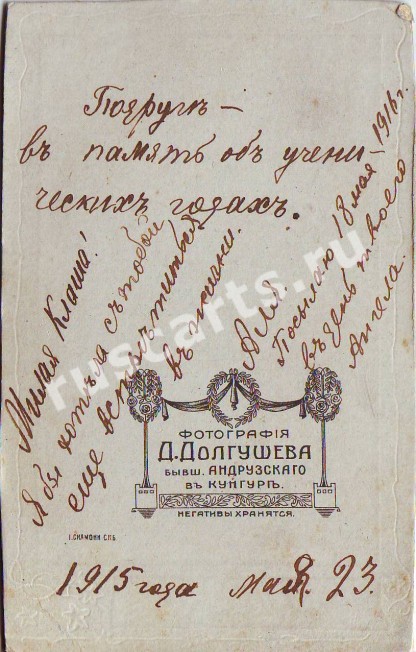 Подругѣ –
въ память объ учени-
ческихъ годахъ.
Милая Клаша!
Я бы хотѣла съ тобой
еще встрѣтиться
въ жизни.
Посылаю 18 мая 1916 г.
въ день твоего
Ангела.
ФОТОГРАФІЯ
Д. ДОЛГУШЕВА
БЫВШ. АНДРУЗСКАГО
ВЪ КУНГУРѢ.
НЕГАТИВЫ ХРАНЯТСЯ.
І. СКАМОНИ С.П.Б.
1915 года мая 23.
ruscarts.ru